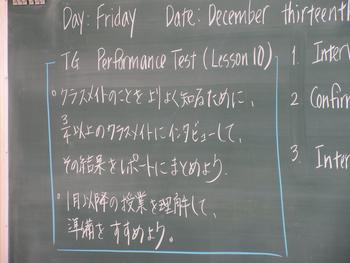 Day: Friday Date: December thirteenth
TG Performance Test (Lesson 10)
。クラスメイトのことをよりよく知るために、
3/4以上のクラスメイトにインタビューして、
その結果をレポートにまとめよう.
。1月以降の授業を理解して、
準備をすすめよう。
1. Interv
2 Confirm
3. Inter